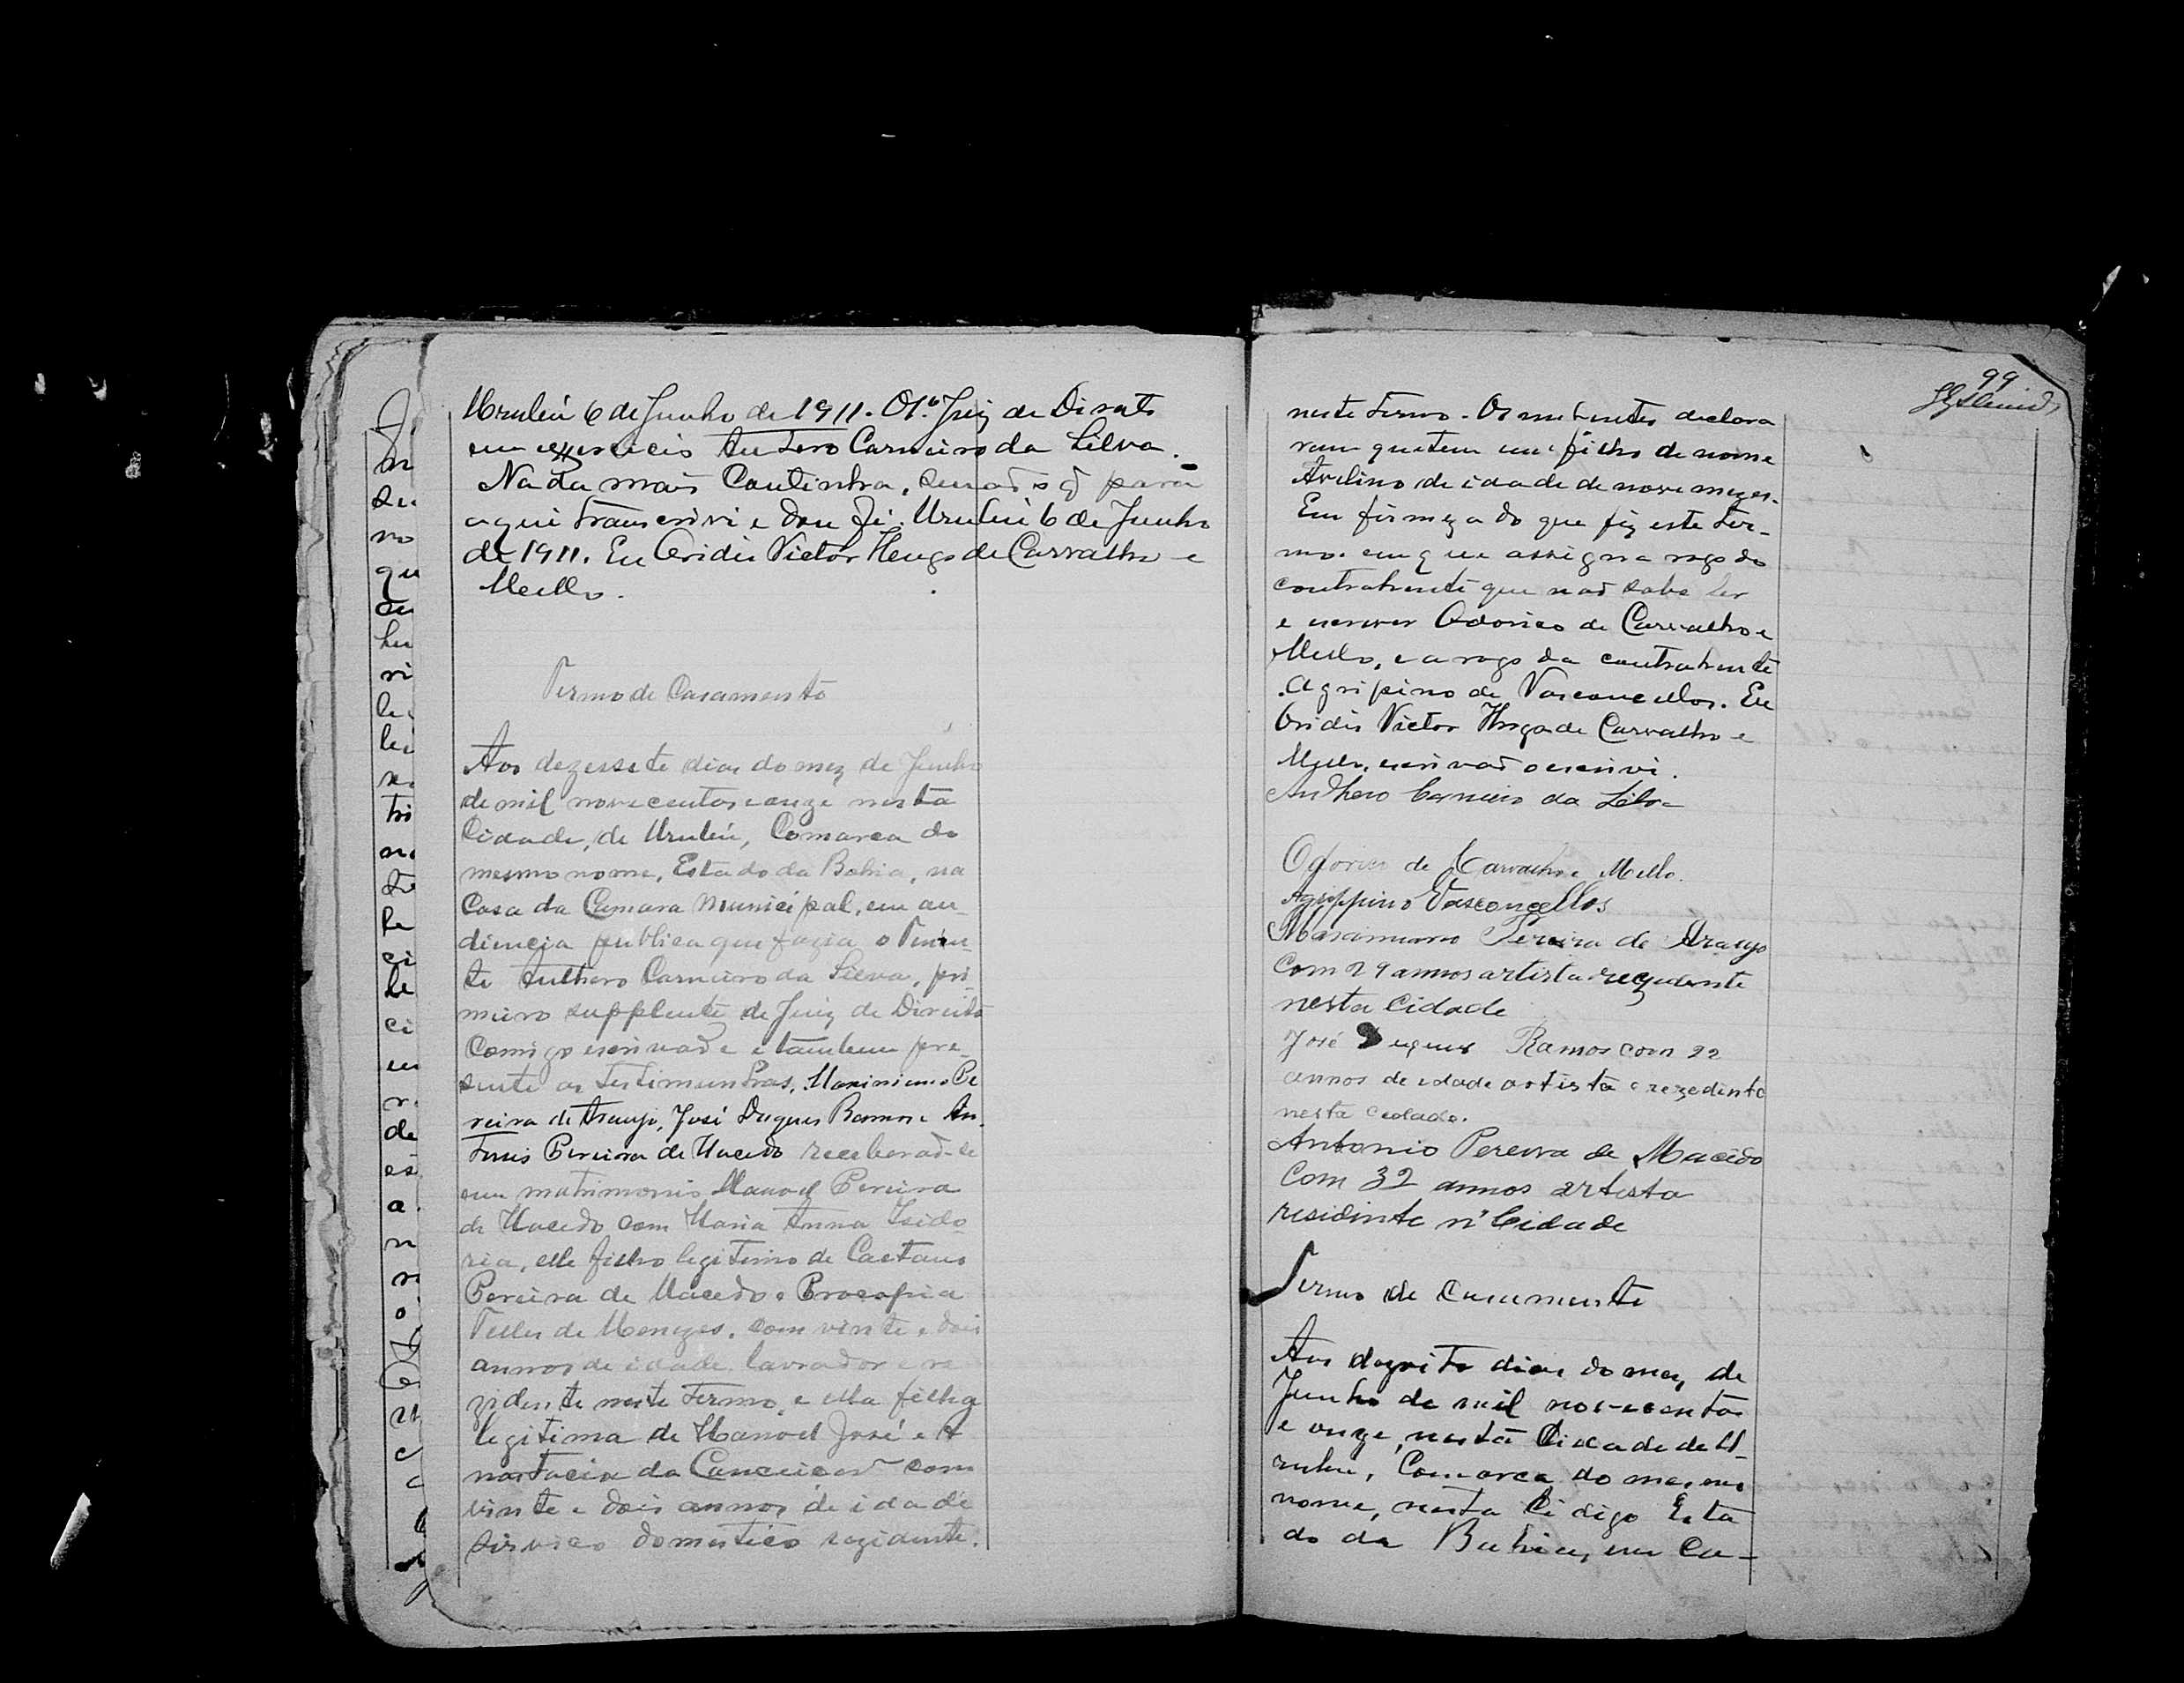 Urubú 6 de Junho de 1911. O 1.º Juiz de Direito
em exercicio Antero Carneiro da Silva.
Nada mais Continha, senão o q̃ para
aqui transcrivi e dou fé. Urubú 6 de Junho
de 1911. Eu Ovidio Victor Hugo de Carvalho e
Mello.
Termo de Casamento
Aos dezessete dias do mez de Junho
de mil novecentos e onze nesta
Cidade, de Urubú, Comarca do
mesmo nome, Estado da Bahia, na
Casa da Camara Municipal, em au-
diencia publica que fazia o Tenen-
te Anthero Carneiro da Silva, pri-
meiro supplente de Juiz de Direito
Comigo escrivão e e tambem pre-
sente as testimunhas, Maximiano Pe
reira de Araujo, José Duques Ramos e An-
tonio Pereira de Macedo receberão-se
em matrimonio Manoel Pereira
de Macedo com Maria Anna Izido-
ria, elle filho legitimo de Caetano
Pereira de Macedo e Procopia
Telles de Menezes, com vinte e dois
annos de idade lavrador e re
zidente neste termo, e ella filha
legitima de Manoel José e A
nastacia da Conceição com
vinte e dois annos de idade
serviço domestico rezidente
99
neste termo. Os nubentes declara
ram que tem um filho de nome
Avelino de idade de nove mezes.
Em firmeza do que fiz este ter-
mo. em que assigna rogo do
contrahente que não sabe ler
e escrever Odorico de Carvalho e
Mello, e a rogo da contrahente
Agripino de Vasconcellos. Eu
Ovidio Victor Hugo de Carvalho e
Mello, escrivão o escrivi.
Anthero Carneiro da Silva
Odorico de Carvalho e Mello.
Agrippino Vasconcellos
Maximiano Pereira de Araujo
Com 29 annos artista rezedente
nesta Cidade
José Duques Ramos com 22
annos de idade artista e rezedento
nesta cedade.
Antonio Pereira de Macedo
Com 32 annos artista
residente n' Cidade
Termo de Casamento
Aos dezoito dias do mez de
Junho de mil novecentos
e onze, nesta Cidade de U-
rubu, Comarca do mesmo
nome, nesta Ci digo Esta
do da Bahia, em Ca-